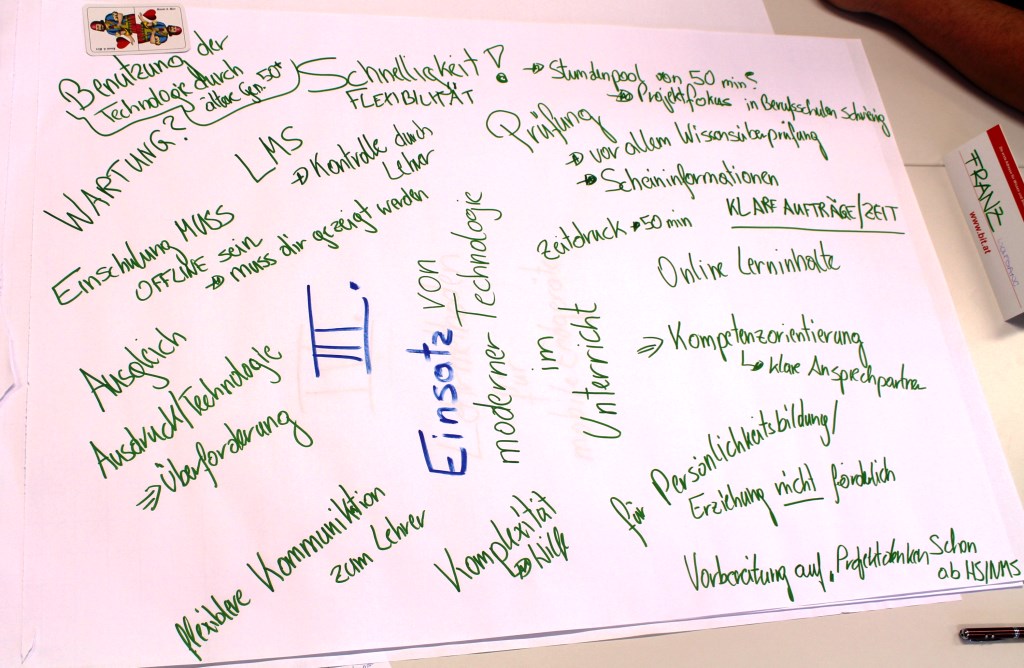 Benutzung der
Technologie durch
ältere Gen. 50+
WARTUNG?
SCHNELLIGKEIT!
FLEXIBILITÄT
LMS
→ Kontrolle durch
Lehrer
→ Stundenpool von 50 min?
→ Projektfokus in Berufsschulen schwierig
Prüfung
→ vor allem Wissensüberprüfung
→ Scheininformationen
KLARE AUFTRÄGE/ZEIT
Zeitdruck → 50 min
Einschulung MUSS
OFFLINE sein
→ muss dir gezeigt werden
III.
Einsatz von
moderner Technologie
im
Unterricht
Online Lerninhalte
⇒ Kompetenzorientierung
↳ klare Ansprechpartner
Ausgleich
Ausdruck/Technologie
⇒ Überforderung
für Persönlichkeitsbildung/
Erziehung nicht förderlich
flexiblere Kommunikation
zum Lehrer
Komplexität
↳ Hilfe
Vorbereitung auf Projektdenken schon
ab HS/NMS
FRANZ
www.bit.at